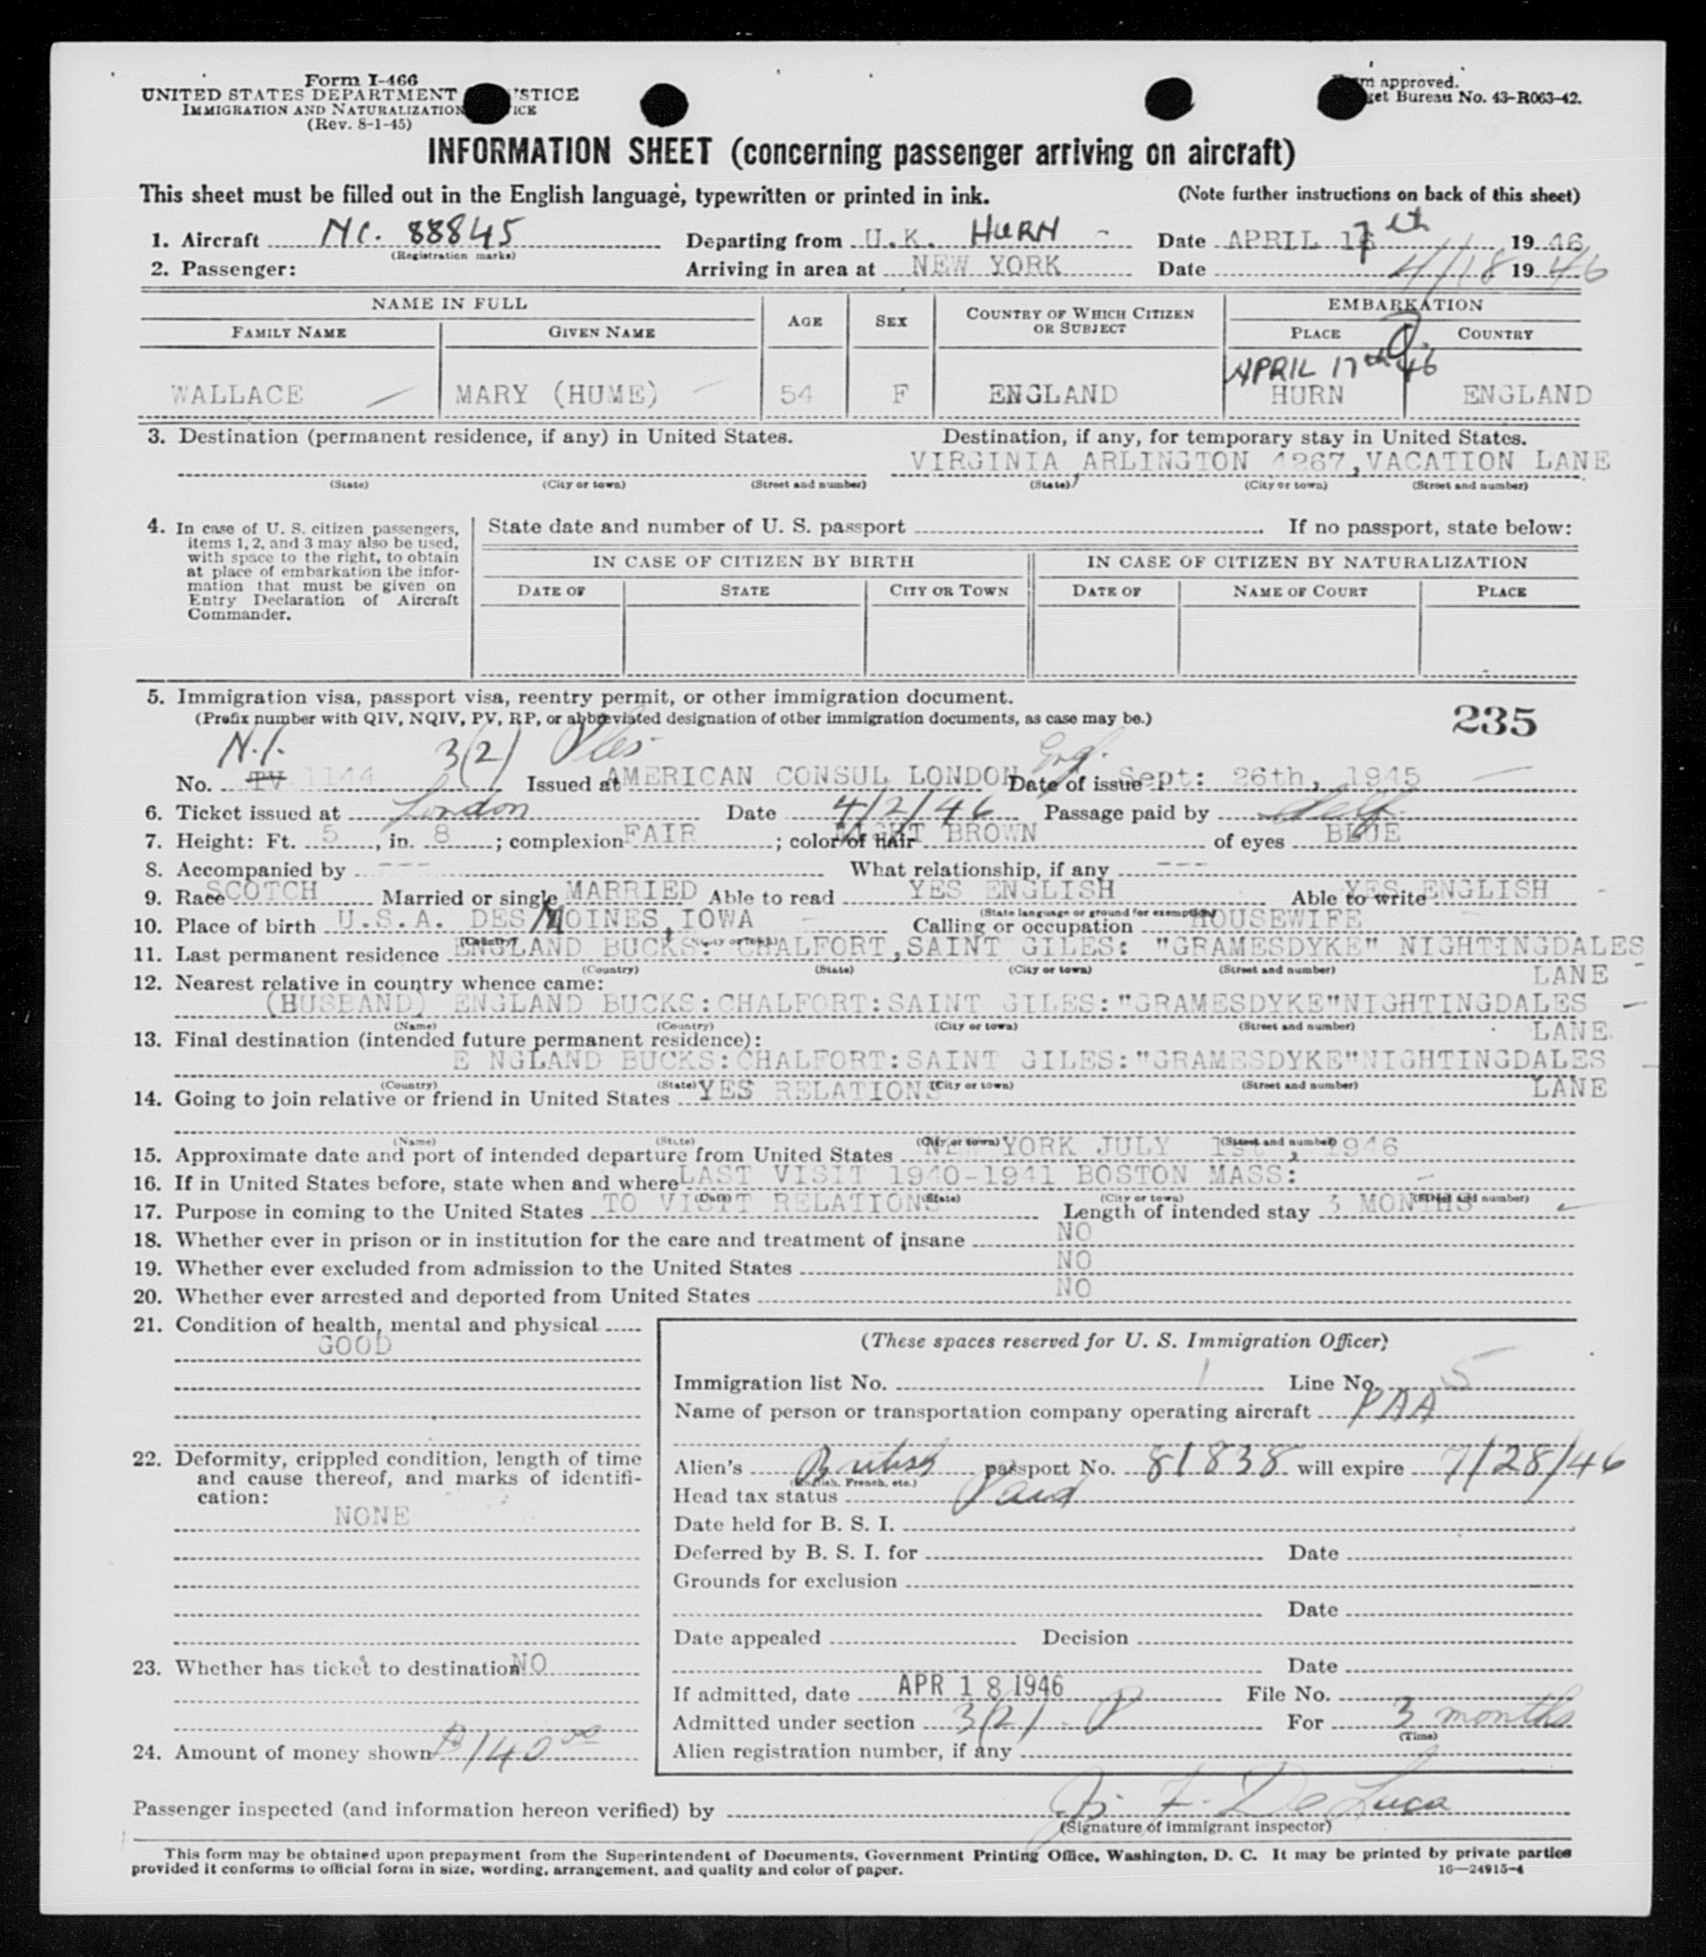 Form I-466
UNITED STATES DEPARTMENT STICE
IMMIGRATION AND NATURALIZATION ICE
(Rev. 8-1-45)
m approved.
get Bureau No. 43-R063-42.
INFORMATION SHEET (concerning passenger arriving on aircraft)
This sheet must be filled out in the English language, typewritten or printed in ink. (Note further instructions on back of this sheet)
1. Aircraft NC. 88845 Departing from U.K. HURN - Date APRIL 17th 1946
(Registration marks)
2. Passenger: Arriving in area at NEW YORK Date 4/18 1946
NAME IN FULL AGE SEX COUNTRY OF WHICH CITIZEN OR SUBJECT EMBARKATION
FAMILY NAME GIVEN NAME PLACE COUNTRY
APRIL 17th 46
WALLACE MARY (HUME) 54 F ENGLAND HURN ENGLAND
3. Destination (permanent residence, if any) in United States. Destination, if any, for temporary stay in United States.
VIRGINIA, ARLINGTON 4267, VACATION LANE
(State) (City or town) (Street and number) (State) (City or town) (Street and number)
4. In case of U. S. citizen passengers, items 1, 2, and 3 may also be used, with space to the right, to obtain at place of embarkation the information that must be given on Entry Declaration of Aircraft Commander.
State date and number of U. S. passport If no passport, state below:
IN CASE OF CITIZEN BY BIRTH IN CASE OF CITIZEN BY NATURALIZATION
DATE OF STATE CITY OR TOWN DATE OF NAME OF COURT PLACE
5. Immigration visa, passport visa, reentry permit, or other immigration document.
(Prefix number with QIV, NQIV, PV, RP, or abbreviated designation of other immigration documents, as case may be.)
235
N.I. 3(2) Eng.
No. PV 1144 Issued at AMERICAN CONSUL LONDON Date of issue Sept: 26th, 1945
6. Ticket issued at London Date 4/2/46 Passage paid by Self
7. Height: Ft. 5, in. 8; complexion FAIR; color of hair LIGHT BROWN of eyes BLUE
8. Accompanied by --- What relationship, if any ---
9. Race SCOTCH Married or single MARRIED Able to read YES ENGLISH Able to write YES ENGLISH
(State language or ground for exemption)
10. Place of birth U.S.A. DES MOINES, IOWA Calling or occupation HOUSEWIFE
(Country) (City or town)
11. Last permanent residence ENGLAND BUCKS: CHALFORT, SAINT GILES: "GRAMESDYKE" NIGHTINGDALES LANE
(Country) (State) (City or town) (Street and number)
12. Nearest relative in country whence came:
(HUSBAND) ENGLAND BUCKS:CHALFORT:SAINT GILES:"GRAMESDYKE"NIGHTINGDALES LANE.
(Name) (Country) (City or town) (Street and number)
13. Final destination (intended future permanent residence):
E NGLAND BUCKS:CHALFORT:SAINT GILES:"GRAMESDYKE"NIGHTINGDALES LANE
(Country) (State) (City or town) (Street and number)
14. Going to join relative or friend in United States YES RELATIONS
(Name) (State) (City or town) (Street and number)
15. Approximate date and port of intended departure from United States NEW YORK JULY 1st, 1946
16. If in United States before, state when and where LAST VISIT 1940-1941 BOSTON MASS:
(Date) (State) (City or town) (Street and number)
17. Purpose in coming to the United States TO VISIT RELATIONS Length of intended stay 3 MONTHS
18. Whether ever in prison or in institution for the care and treatment of insane NO
19. Whether ever excluded from admission to the United States NO
20. Whether ever arrested and deported from United States NO
21. Condition of health, mental and physical
GOOD
22. Deformity, crippled condition, length of time and cause thereof, and marks of identification:
NONE
23. Whether has ticket to destination NO
24. Amount of money shown $140.00
(These spaces reserved for U. S. Immigration Officer)
Immigration list No. 1 Line No. 5
Name of person or transportation company operating aircraft PAA
Alien's British passport No. 81838 will expire 7/28/46
(English, French, etc.)
Head tax status Paid
Date held for B. S. I.
Deferred by B. S. I. for Date
Grounds for exclusion
Date
Date appealed Decision
Date
If admitted, date APR 18 1946 File No.
Admitted under section 3(2) - P For 3 months
(Time)
Alien registration number, if any
Passenger inspected (and information hereon verified) by J. F. De Luca
(Signature of immigrant inspector)
This form may be obtained upon prepayment from the Superintendent of Documents, Government Printing Office, Washington, D. C. It may be printed by private parties
provided it conforms to official form in size, wording, arrangement, and quality and color of paper. 16—24915-4